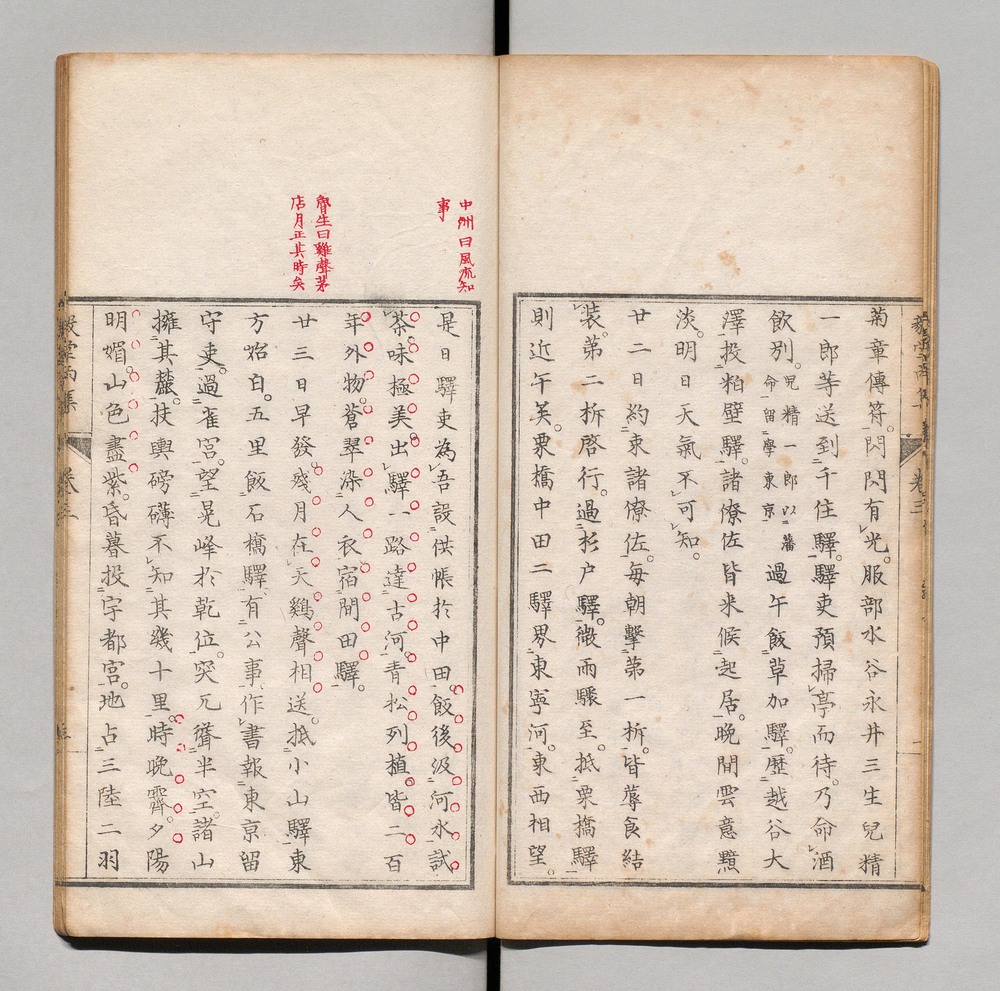 菊章傳符。閃閃有光。服部水谷永井三生兒精
一郎等送到千住驛。驛吏預掃亭而待。乃命酒
飲別。兒精一郎以藩命留學東京 過午飯草加驛。歷越谷大
澤投粕壁驛。諸僚佐皆來候起居。晚間雲意黯
淡。明日天氣不可知。
廿二日約束諸僚佐。每朝擊第一柝。皆蓐食結
裝。第二柝啓行。過杉戶驛。微雨驟至。抵栗橋驛
則近午矣。栗橋中田二驛界東寧河。東西相望。
中州曰風流知
事
是日驛吏為吾設供帳於中田。飯後汲河水試
茶。味極美。出驛一路達古河。青松列植。皆二百
年外物。蒼翠染人衣。宿間田驛。
齊生曰雞聲茅
店月正其時矣
廿三日早發。殘月在天。鷄聲相送。抵小山驛。東
方始白。五里飯石橋驛。有公事。作書報東京留
守吏。過雀宮。望晃峰於乾位。突兀聳半空。諸山
擁其麓。扶輿磅礴。不知其幾十里。時晚霽。夕陽
明媚。山色盡紫。昏暮投宇都宮。地占三陸二羽
卷三